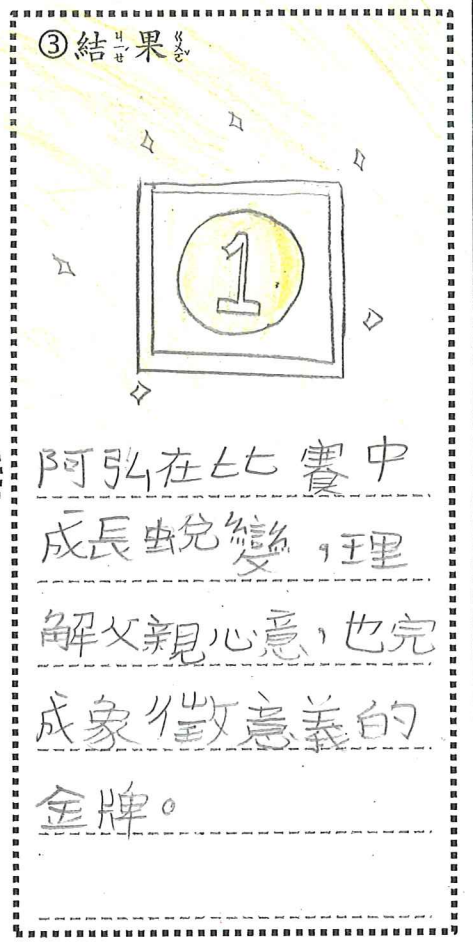 ③結ㄐㄧㄝˊ果ㄍㄨㄛˇ
1
阿弘在比賽中
成長蛻變，理
解父親心意，也完
成象徵意義的
金牌。